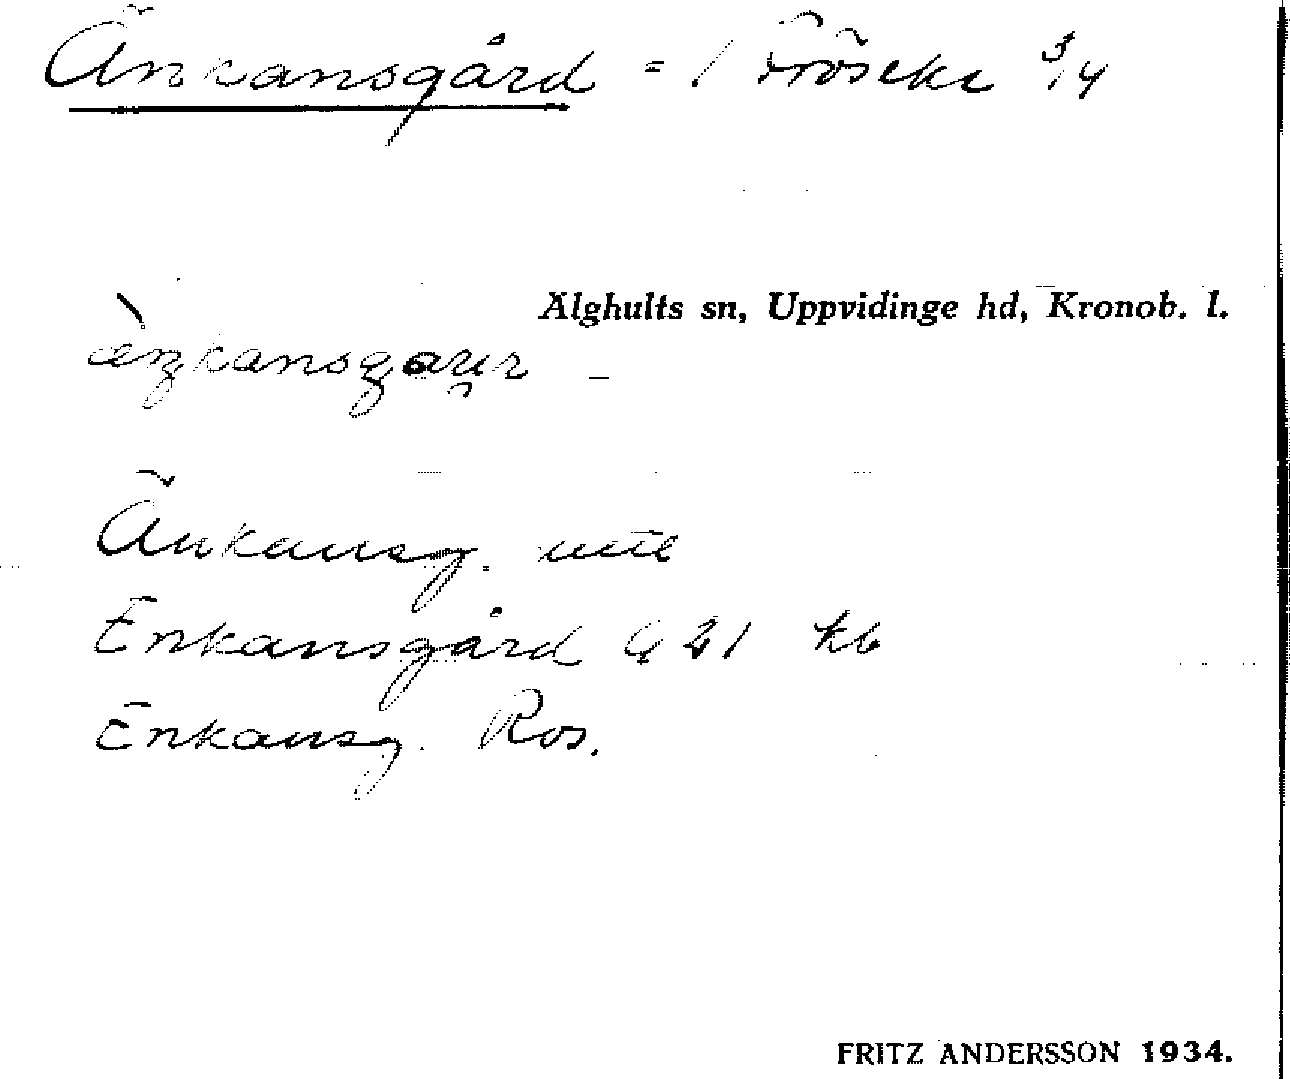 Änkansgård = / Fröseke 3/4
Älghults sn, Uppvidinge hd, Kronob. l.
Änkansg. utt
Enkansgård G 21 kb
Enkansg. Ros.
FRITZ ANDERSSON 1934.